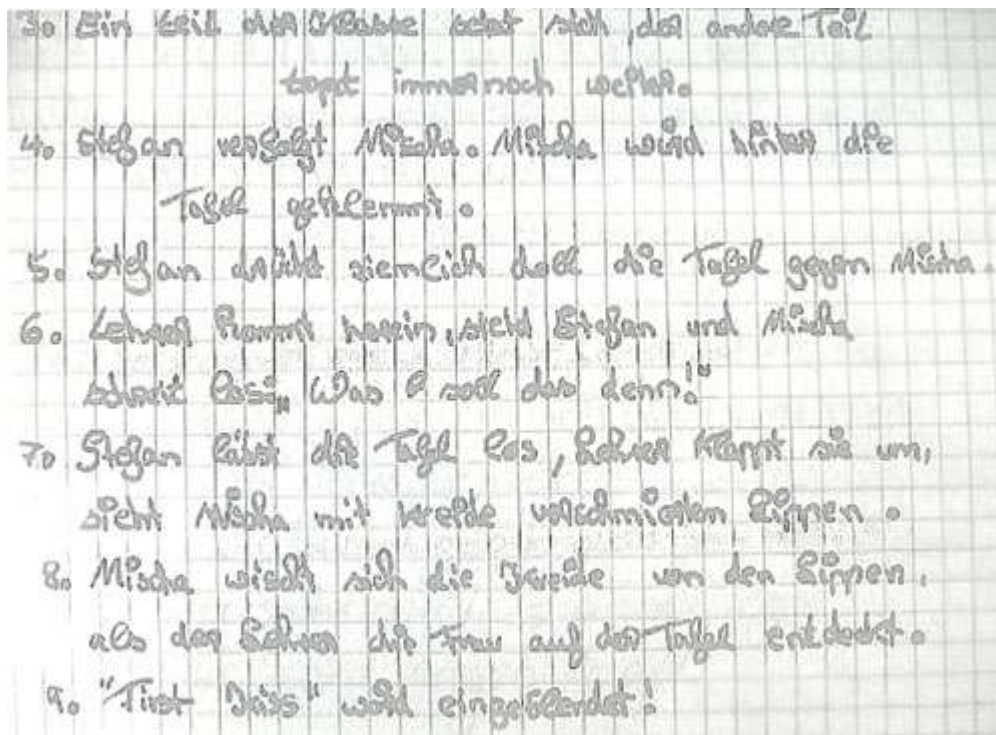 3. Ein teil der Klasse setzt sich, der andere Teil
topt immer noch weiter.
4. Stefan verfolgt Mischa. Mischa wird hinter die
Tafel geklemmt.
5. Stefan drückt ziemlich doll die Tafel gegen Mischa.
6. Lehrer kommt herein, sieht Stefan und Mischa
schreit los: „Was soll das denn!"
7. Stefan lässt die Tafel los, Lehrer klappt sie um,
sieht Mischa mit kreide verschmierten Lippen.
8. Mischa wischt sich die Kreide von den Lippen,
als der Lehrer die Frau auf der Tafel entdeckt.
9. "First Kiss" wird eingeblendet!